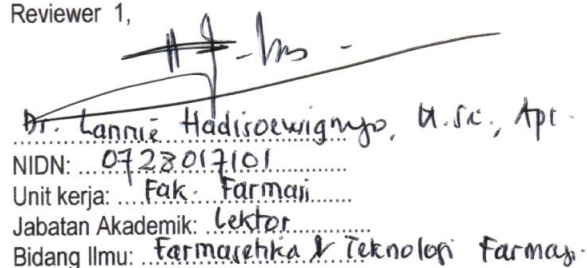 Reviewer 1,
Dr. Lannie Hadisoewignyo, M.Sc., Apt.
NIDN: 0723017101
Unit kerja: Fak. Farmasi
Jabatan Akademik: Lektor
Bidang Ilmu: Farmasetika & Teknologi Farmasi